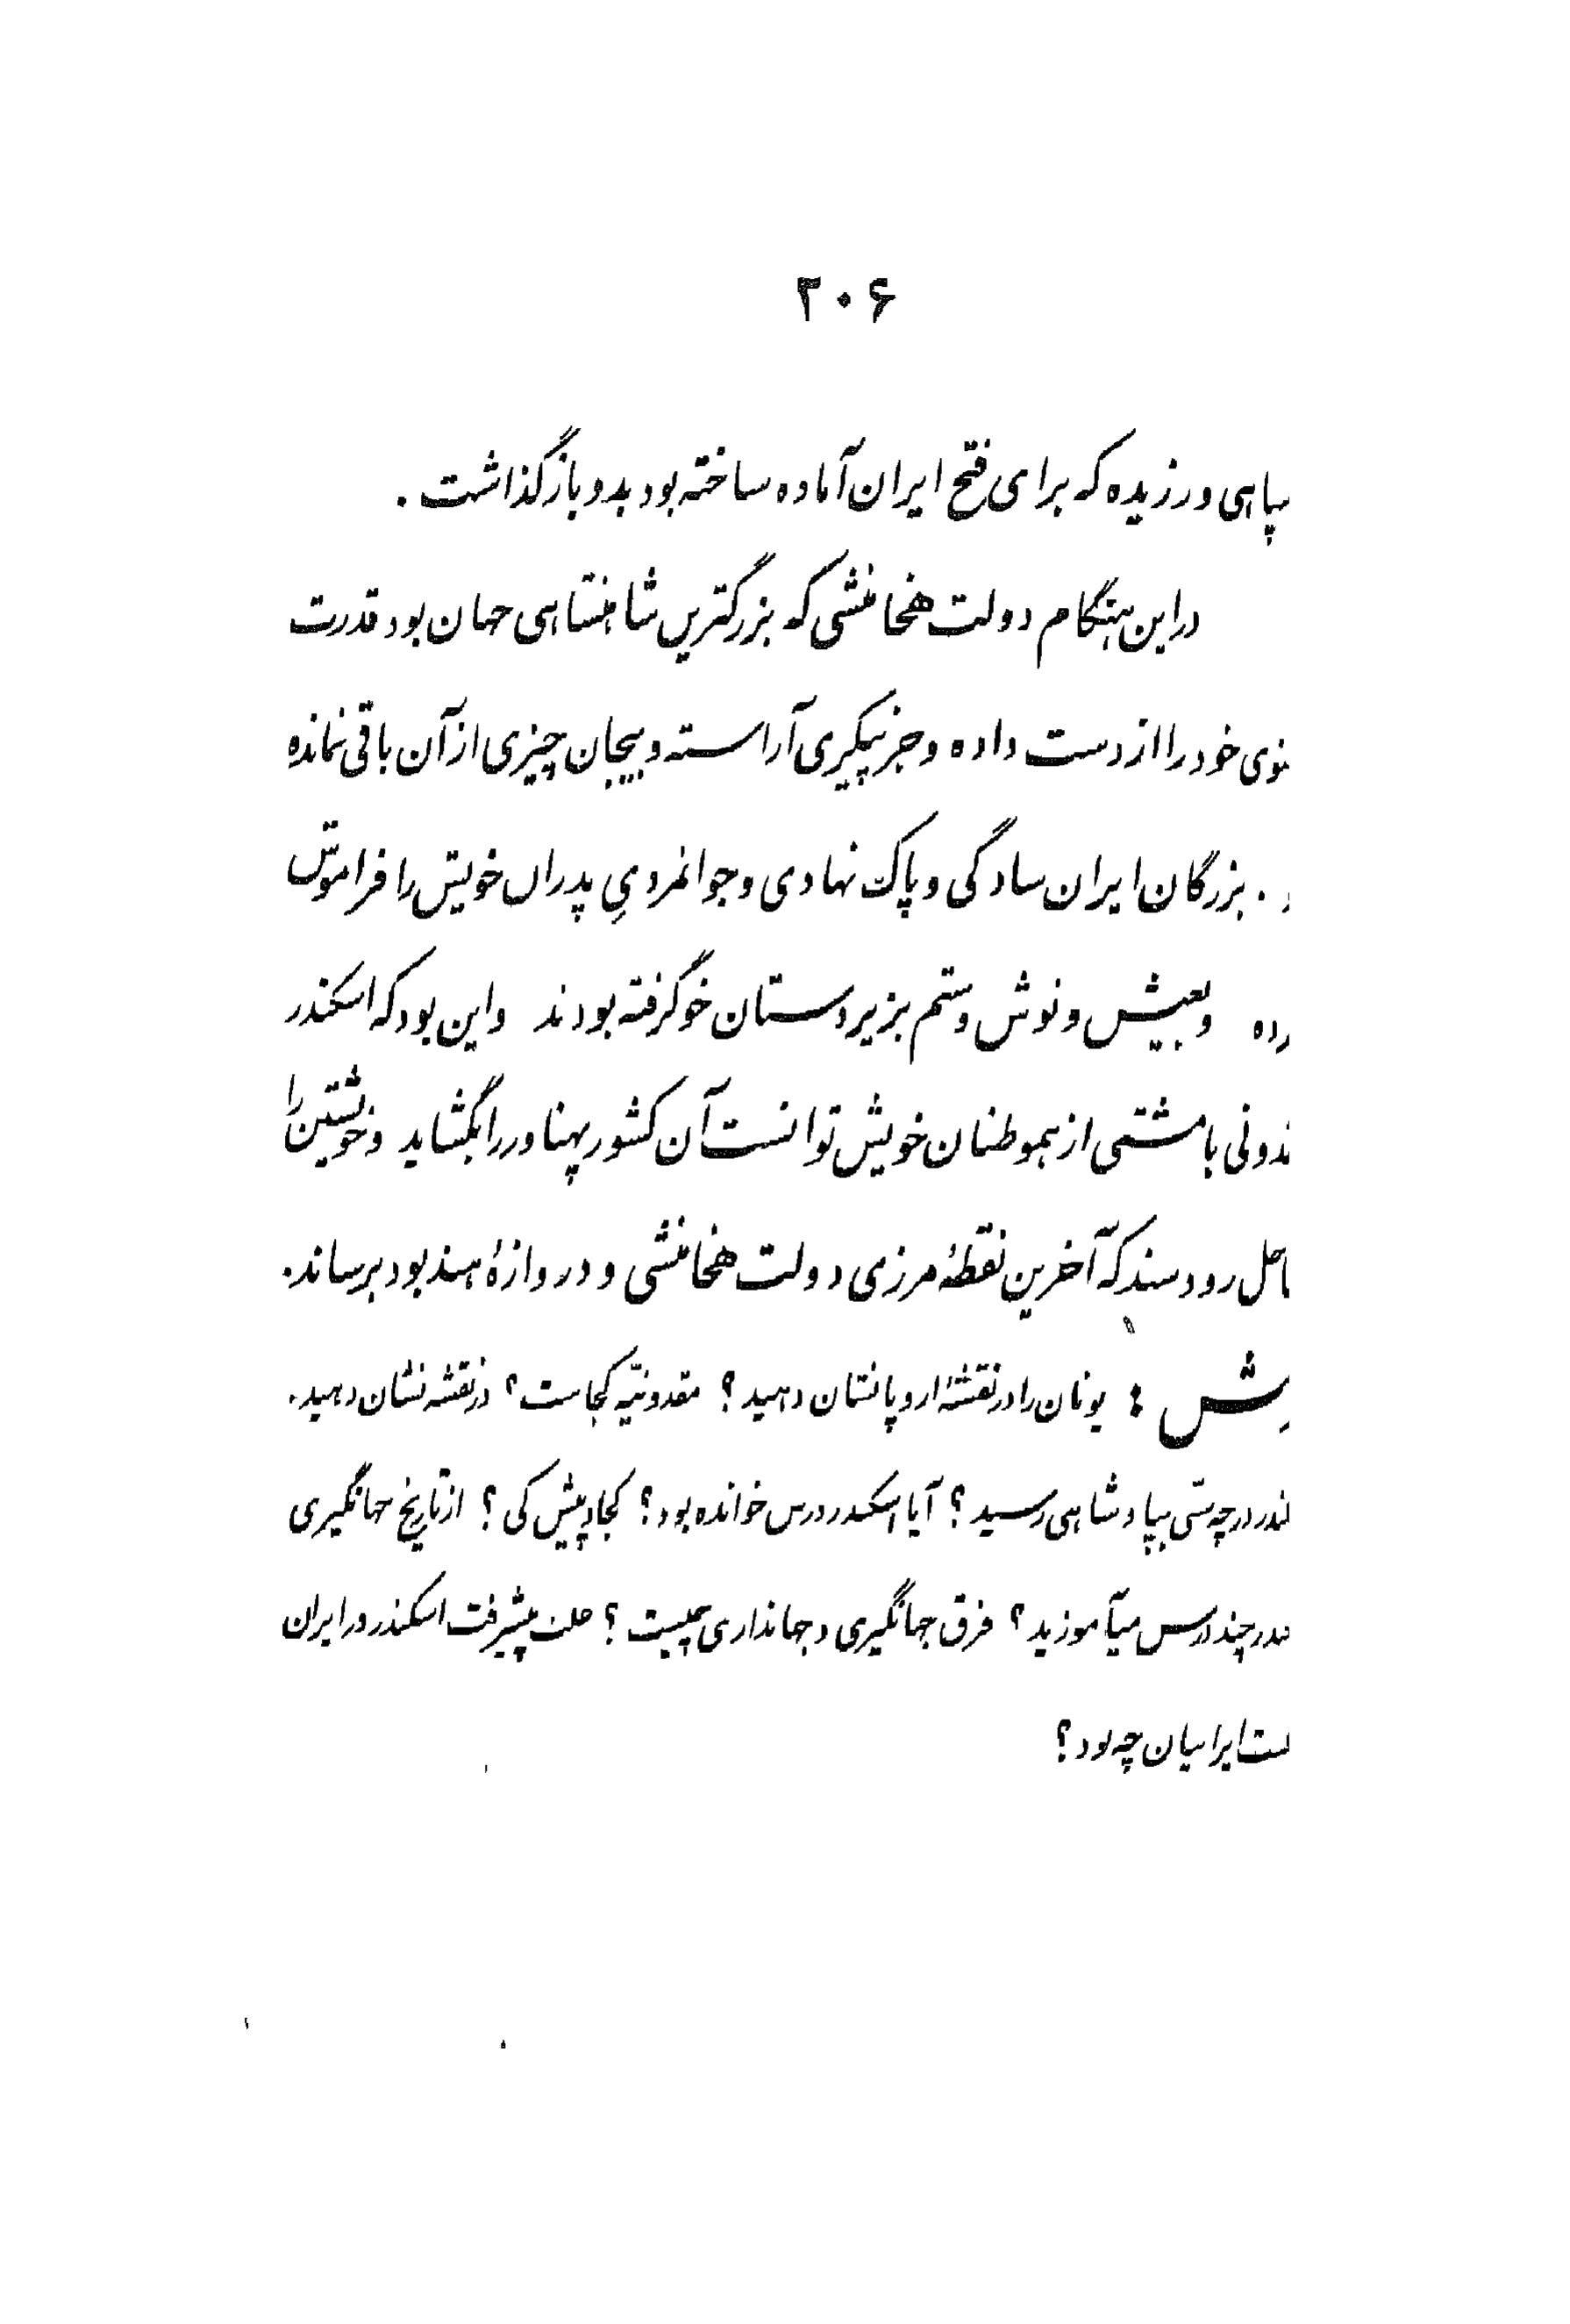 ۲۰۶
سپاهی ورزیده که برای فتح ایران آماده ساخته بود بدو بازگذاشت .
در این هنگام دولت هخامنشی که بزرگترین شاهنشاهی جهان بود قدرت
خود را از دست داده و جز پیکری آراسته و بیجان چیزی از آن باقی نمانده
. بزرگان ایران سادگی و پاک نهادی و جوانمردیِ پدران خویش را فراموش
و بعیش و نوش و ستم بزیردستان خو گرفته بودند و این بود که اسکندر
با مشتی از هموطنان خویش توانست آن کشور پهناور را بگشاید و خویشتن را
رود سند که آخرین نقطهٔ مرزی دولت هخامنشی و دروازهٔ هند بود برساند.
: یونان را در نقشهٔ اروپا نشان دهید ؟ مقدونیّه کجاست ؟ در نقشه نشان دهید.
در چه سنّی بپادشاهی رسید ؟ آیا اسکندر درس خوانده بود ؟ کجا و پیش کی ؟ از تاریخ جهانگیری
چند درس میآموزید ؟ فرق جهانگیری و جهانداری چیست ؟ علت پیشرفت اسکندر در ایران
ایرانیان چه بود ؟